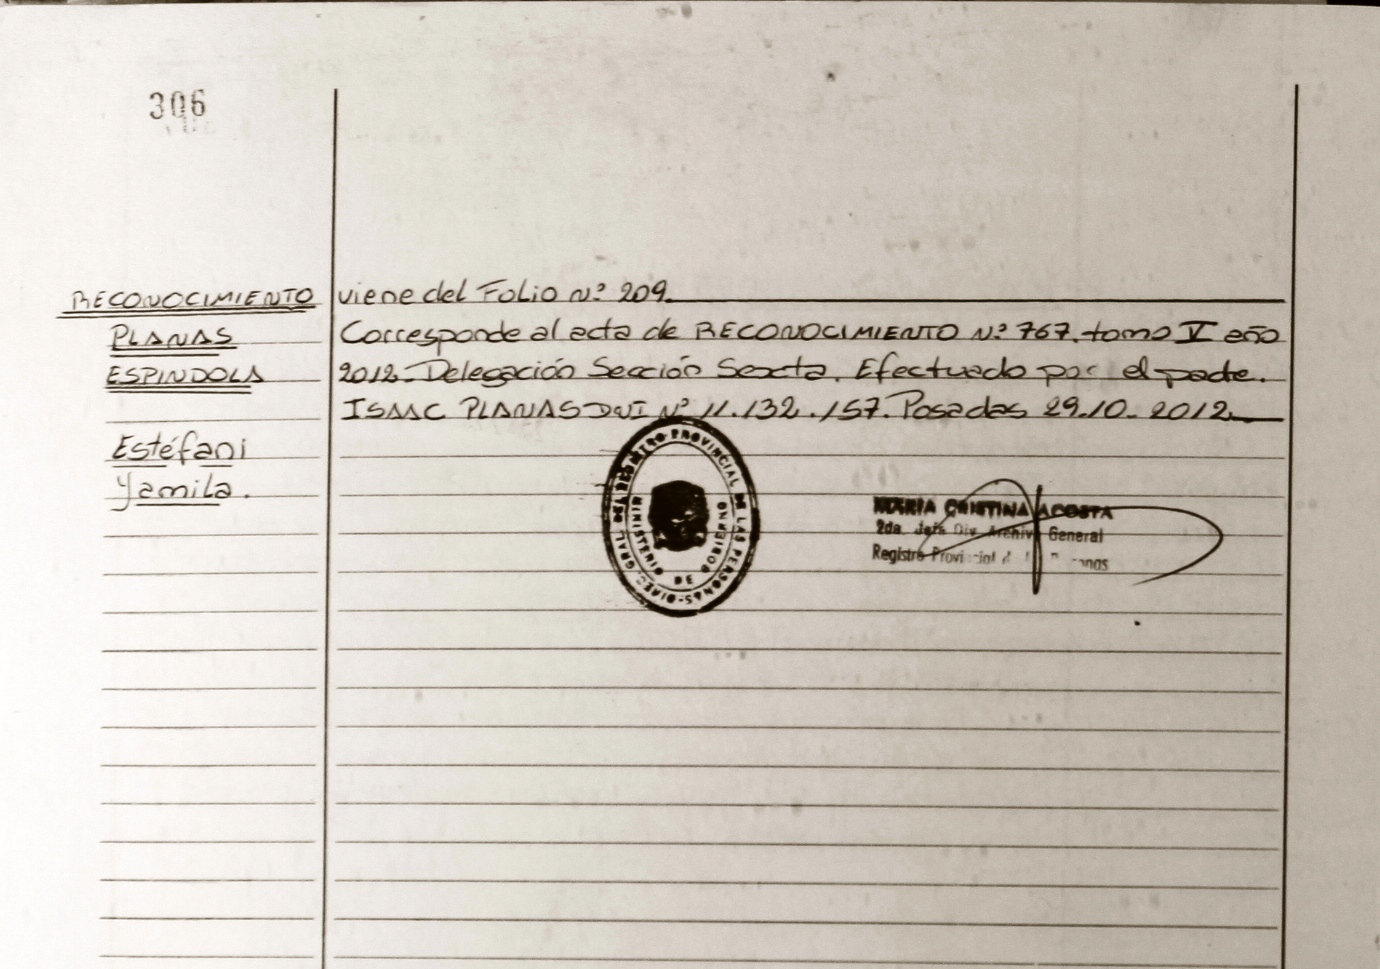 306
RECONOCIMIENTO
PLANAS
ESPINDOLA
Estéfani
Yamila.
viene del Folio Nº 209.
Corresponde al acta de RECONOCIMIENTO Nº 767. tomo V año
2012. Delegación Sección Sexta. Efectuado por el padre.
ISAAC PLANAS DNI Nº 11.132.157. Posadas 29.10.2012.
DIREC. GRAL. DEL REGISTRO PROVINCIAL DE LAS PERSONAS
MINISTERIO DE GOBIERNO
MARIA CRISTINA ACOSTA
2da. Jefa Div. Archivo General
Registro Provincial